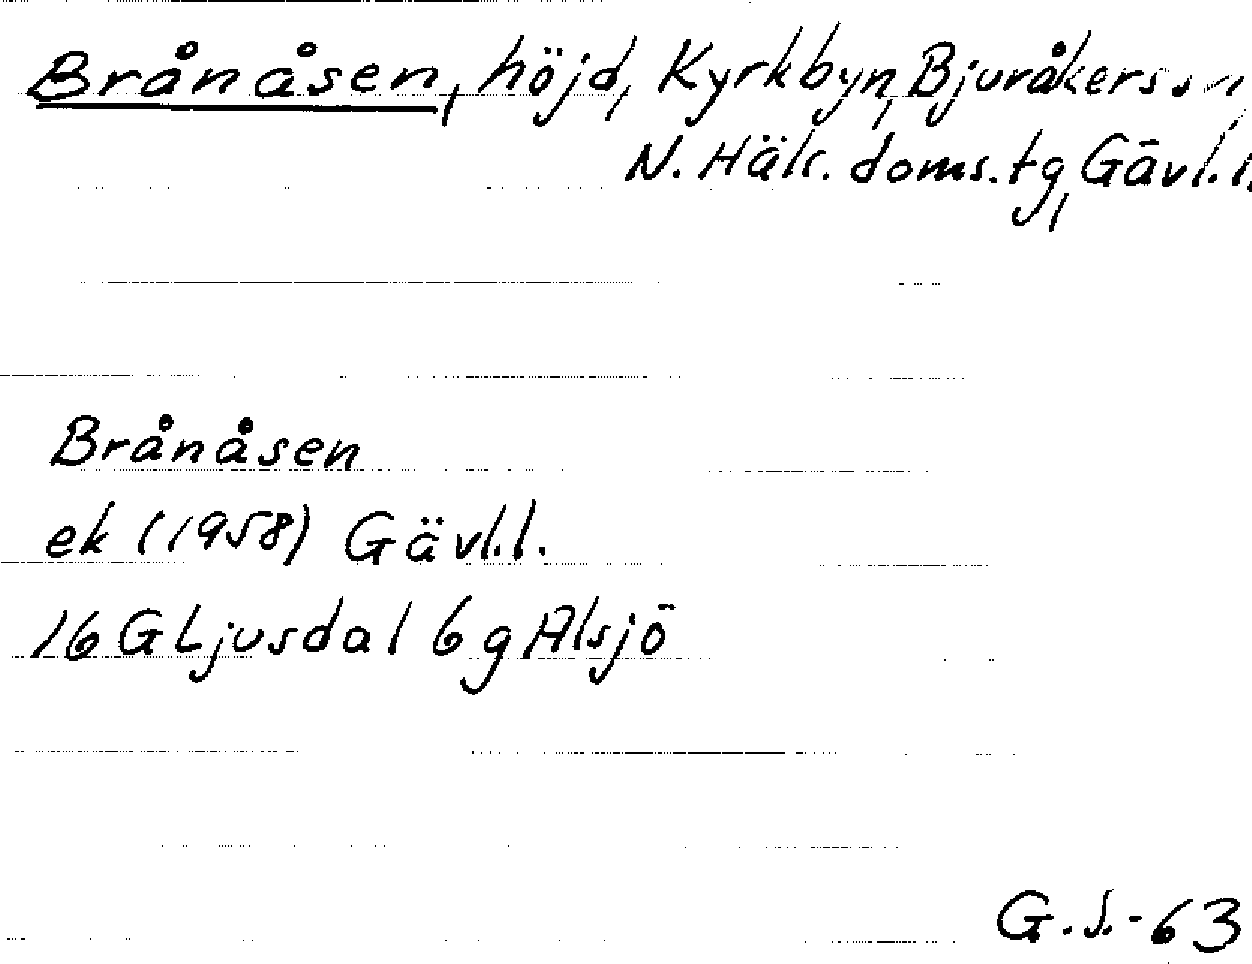 Brånåsen, höjd, Kyrkbyn, Bjuråkers sn,
N. Häls. doms. tg, Gävl. l.
Brånåsen
ek (1958) Gävl. l.
16 G Ljusdal 6 g Alsjö
G. S. - 63